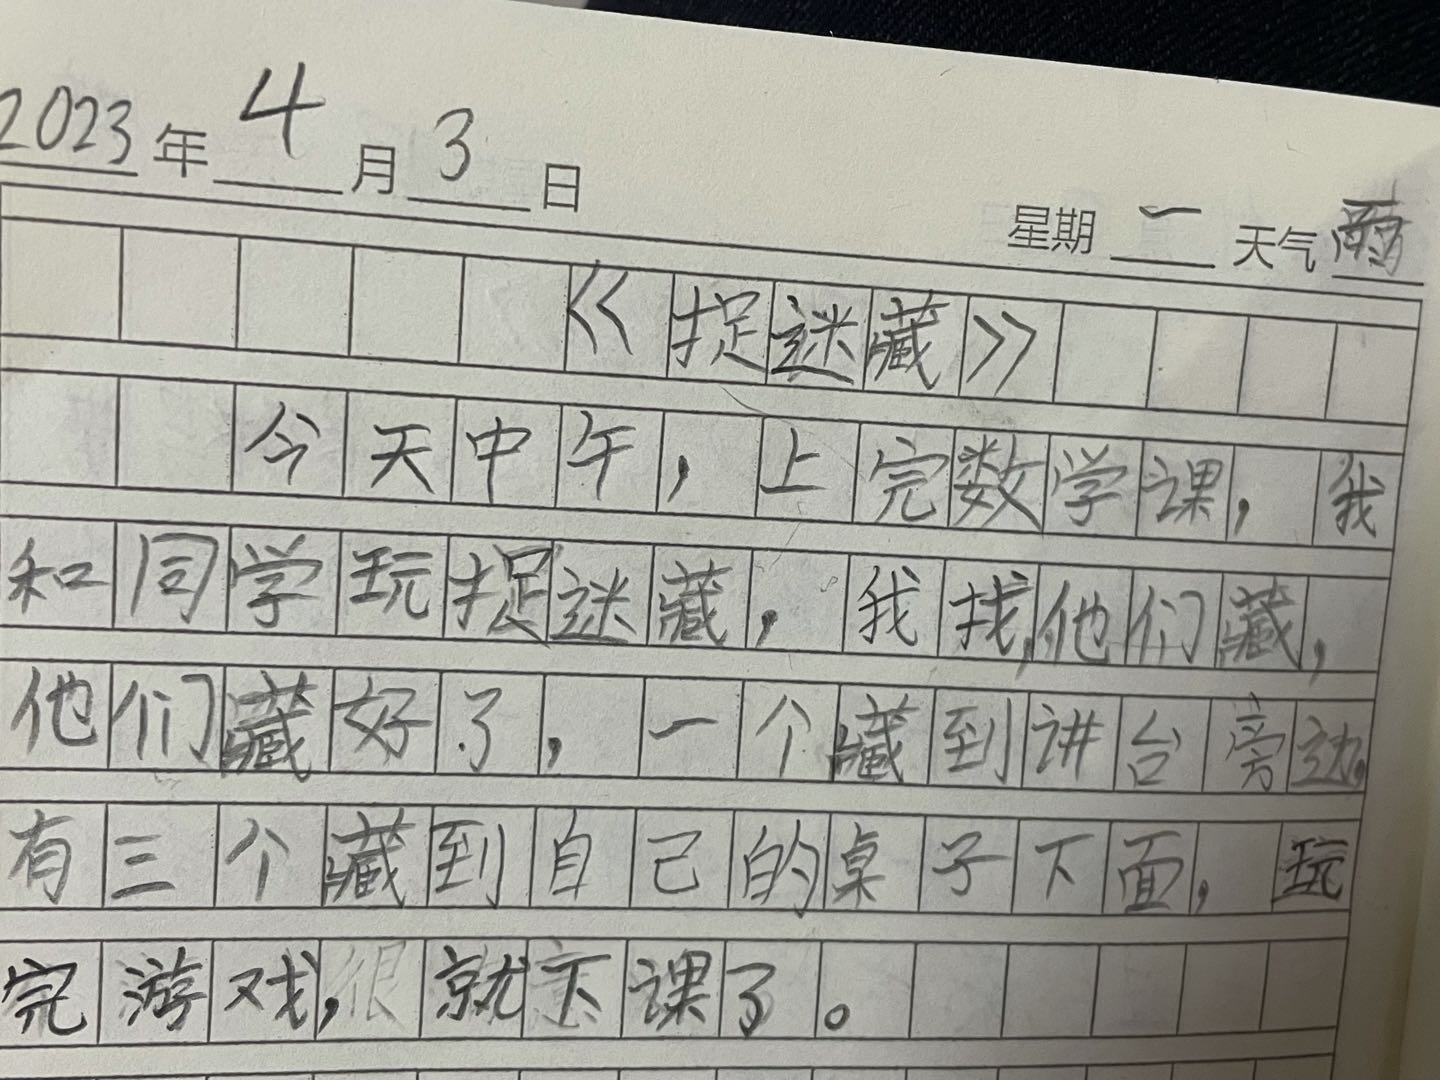 2023年4月3日 星期一 天气雨
《捉迷藏》
今天中午，上完数学课，我
和同学玩捉迷藏，我找，他们藏，
他们藏好了，一个藏到讲台旁边，
有三个藏到自己的桌子下面，玩
完游戏，很就下课了。